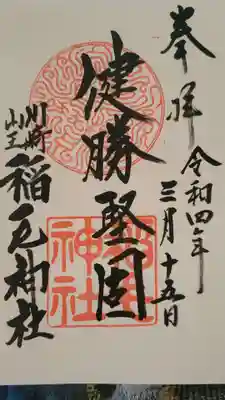 奉拝
令和四年
三月十五日
健勝堅固
川崎
山王
稲毛神社
稲毛
神社